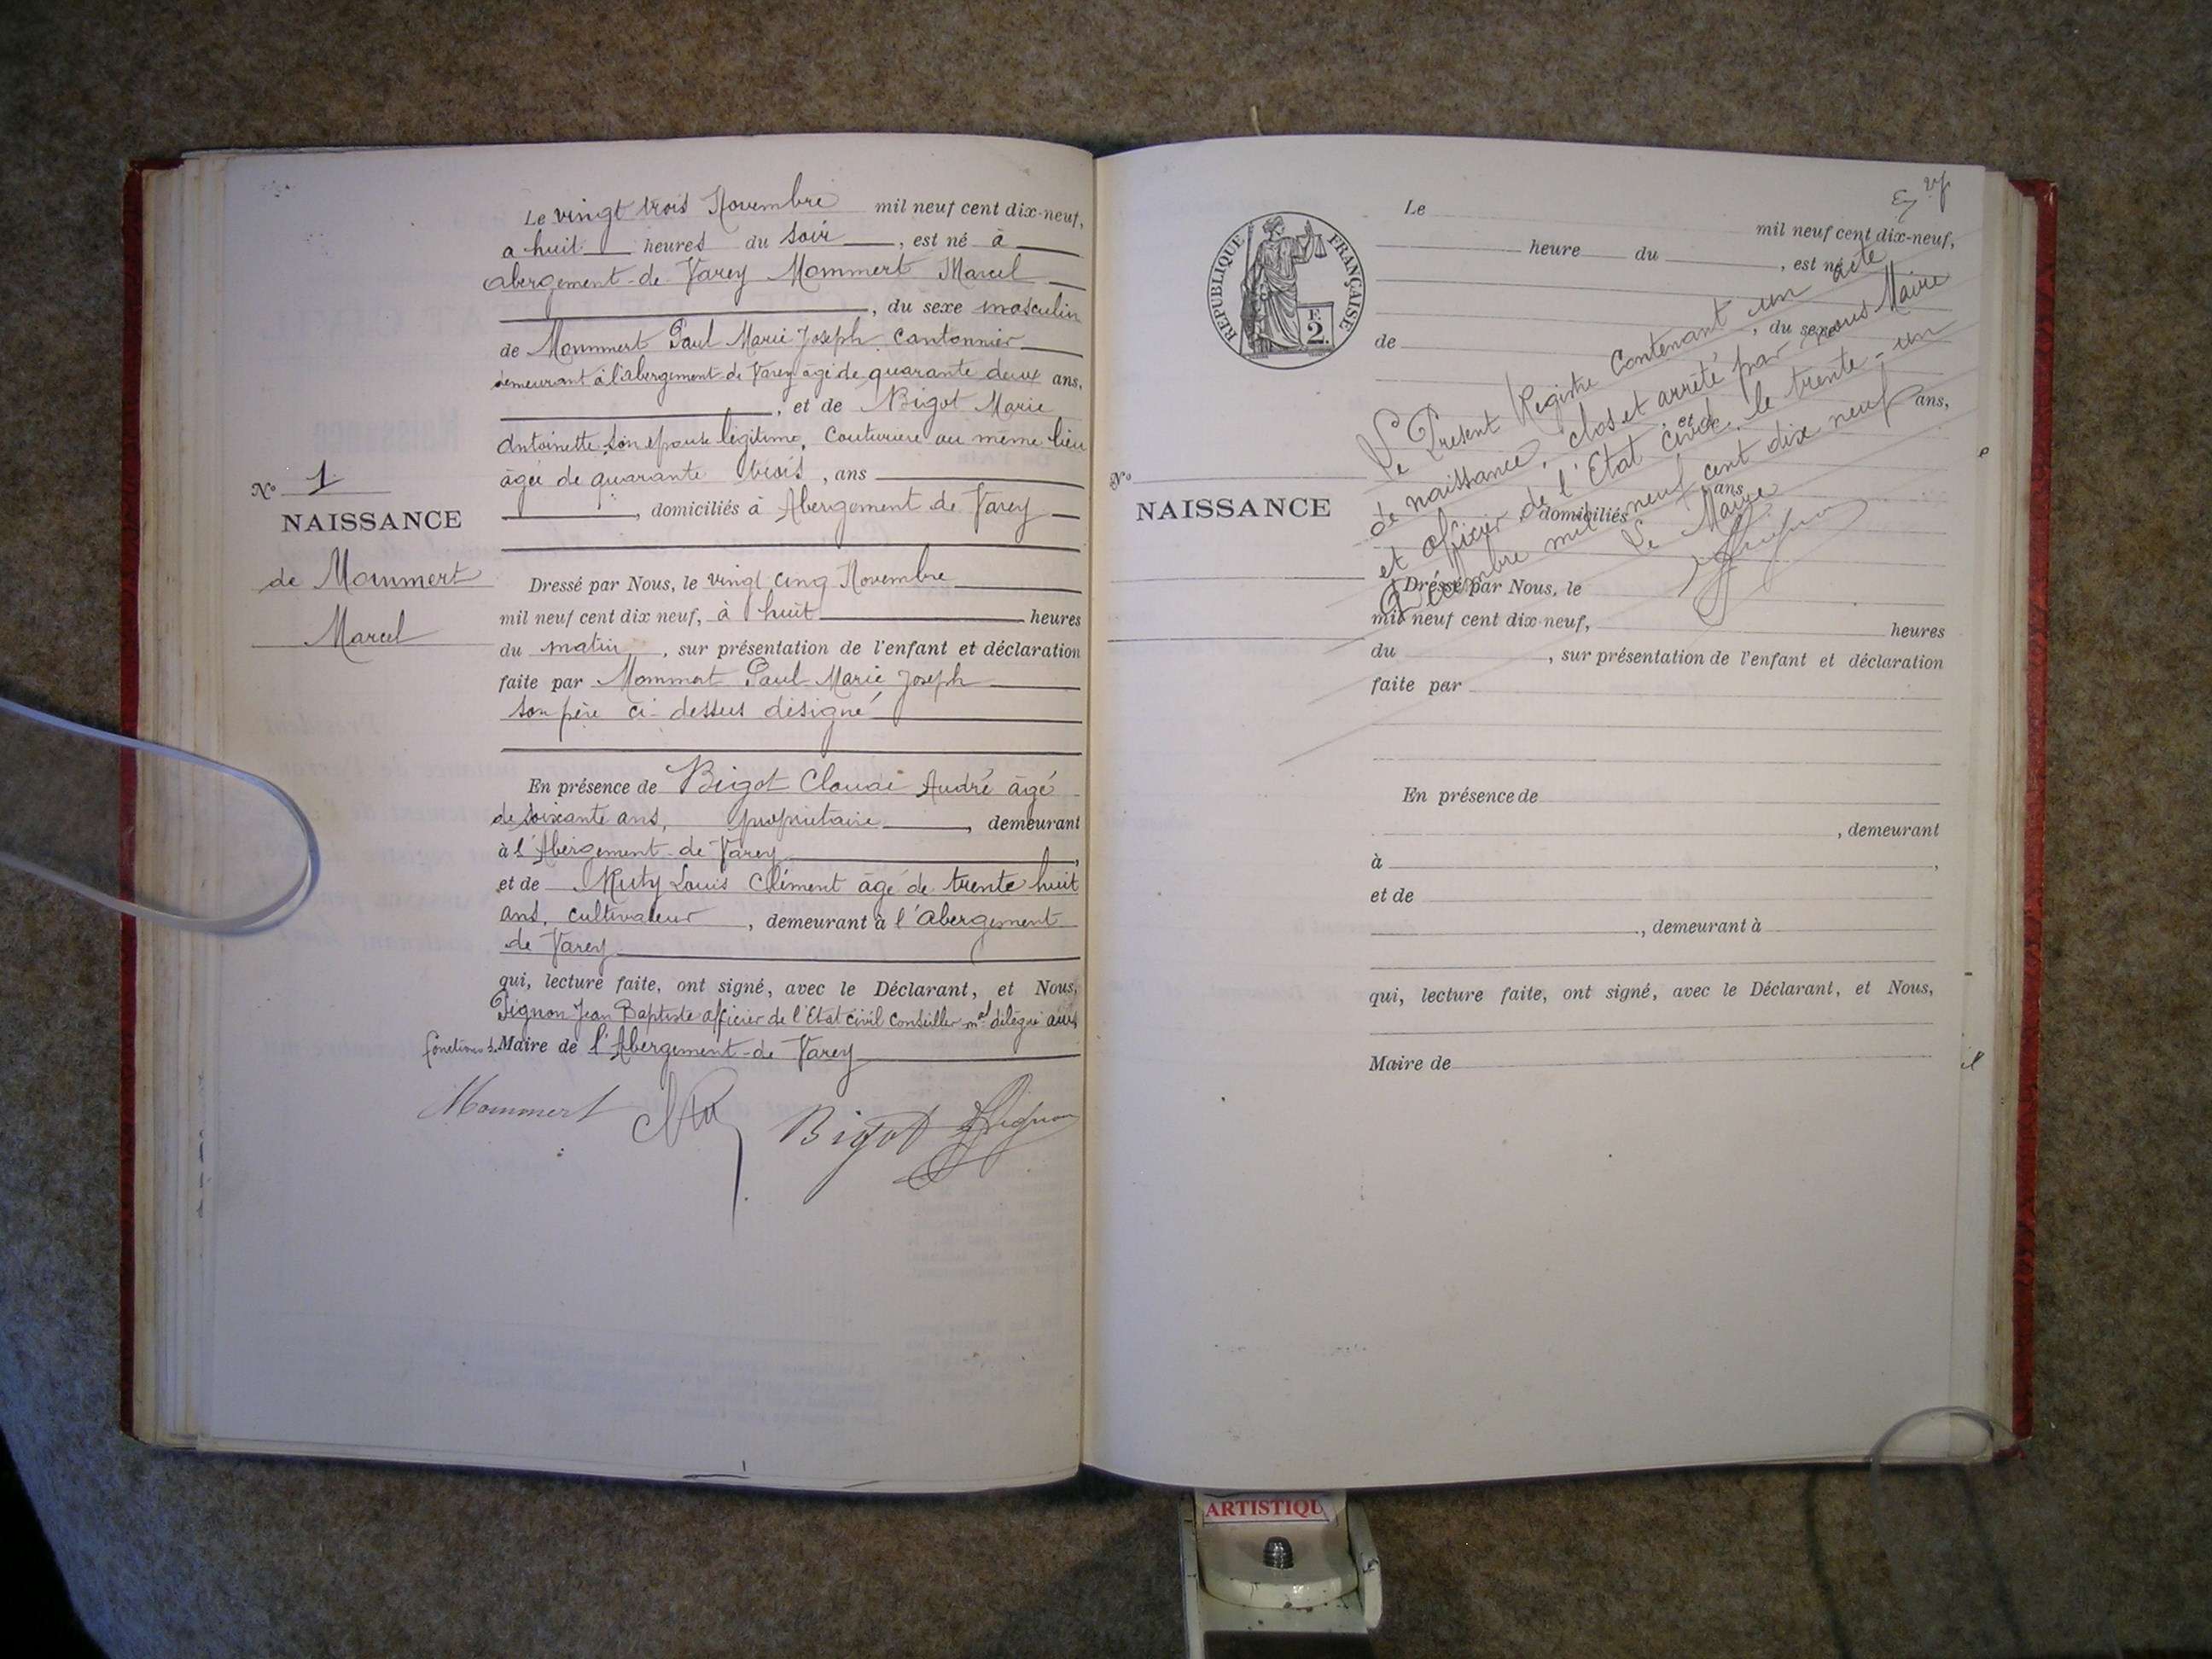 Le vingt trois Novembre mil neuf cent dix-neuf,
a huit heures du soir, est né à
abergement-de Varey Mommert Marcel
, du sexe masculin
de Mommert Paul Marie Joseph Cantonnier
demeurant à l'abergement de Varey agé de quarante deux ans,
, et de Bigot Marie
Antoinette, son épouse légitime, Couturière au même lieu
âgée de quarante trois, ans
, domiciliés à Abergement de Varey
No 1
NAISSANCE
de Mommert
Marcel
Dressé par Nous, le vingt cinq Novembre
mil neuf cent dix neuf, à huit heures
du matin, sur présentation de l'enfant et déclaration
faite par Mommert Paul Marie Joseph
son père ci-dessus désigné
En présence de Bigot Claude André âgé
de soixante ans, propriétaire, demeurant
à l'Abergement-de Varey,
et de Ruty Louis Clément âgé de trente huit
ans, cultivateur, demeurant à l'abergement
de Varey
qui, lecture faite, ont signé, avec le Déclarant, et Nous,
Pignon Jean Baptiste officier de l'Etat civil Conseiller mal délégué aux
fonctions de Maire de l'Abergement-de Varey
Mommert Bigot Pignon
RÉPUBLIQUE FRANÇAISE
F.
2.
Le mil neuf cent dix-neuf,
heure du, est né
, du sexe
de
, et de
ans,
ans
, domiciliés
No
NAISSANCE
Le Présent Registre Contenant un acte
de naissance, clos et arrêté par nous Maire
et officier de l'Etat Civil, le trente-un
Décembre mil neuf cent dix neuf
Le Maire
Pignon
Dressé par Nous, le
mil neuf cent dix-neuf, heures
du, sur présentation de l'enfant et déclaration
faite par
En présence de
, demeurant
à,
et de
, demeurant à
qui, lecture faite, ont signé, avec le Déclarant, et Nous,
Maire de
ARTISTIQU